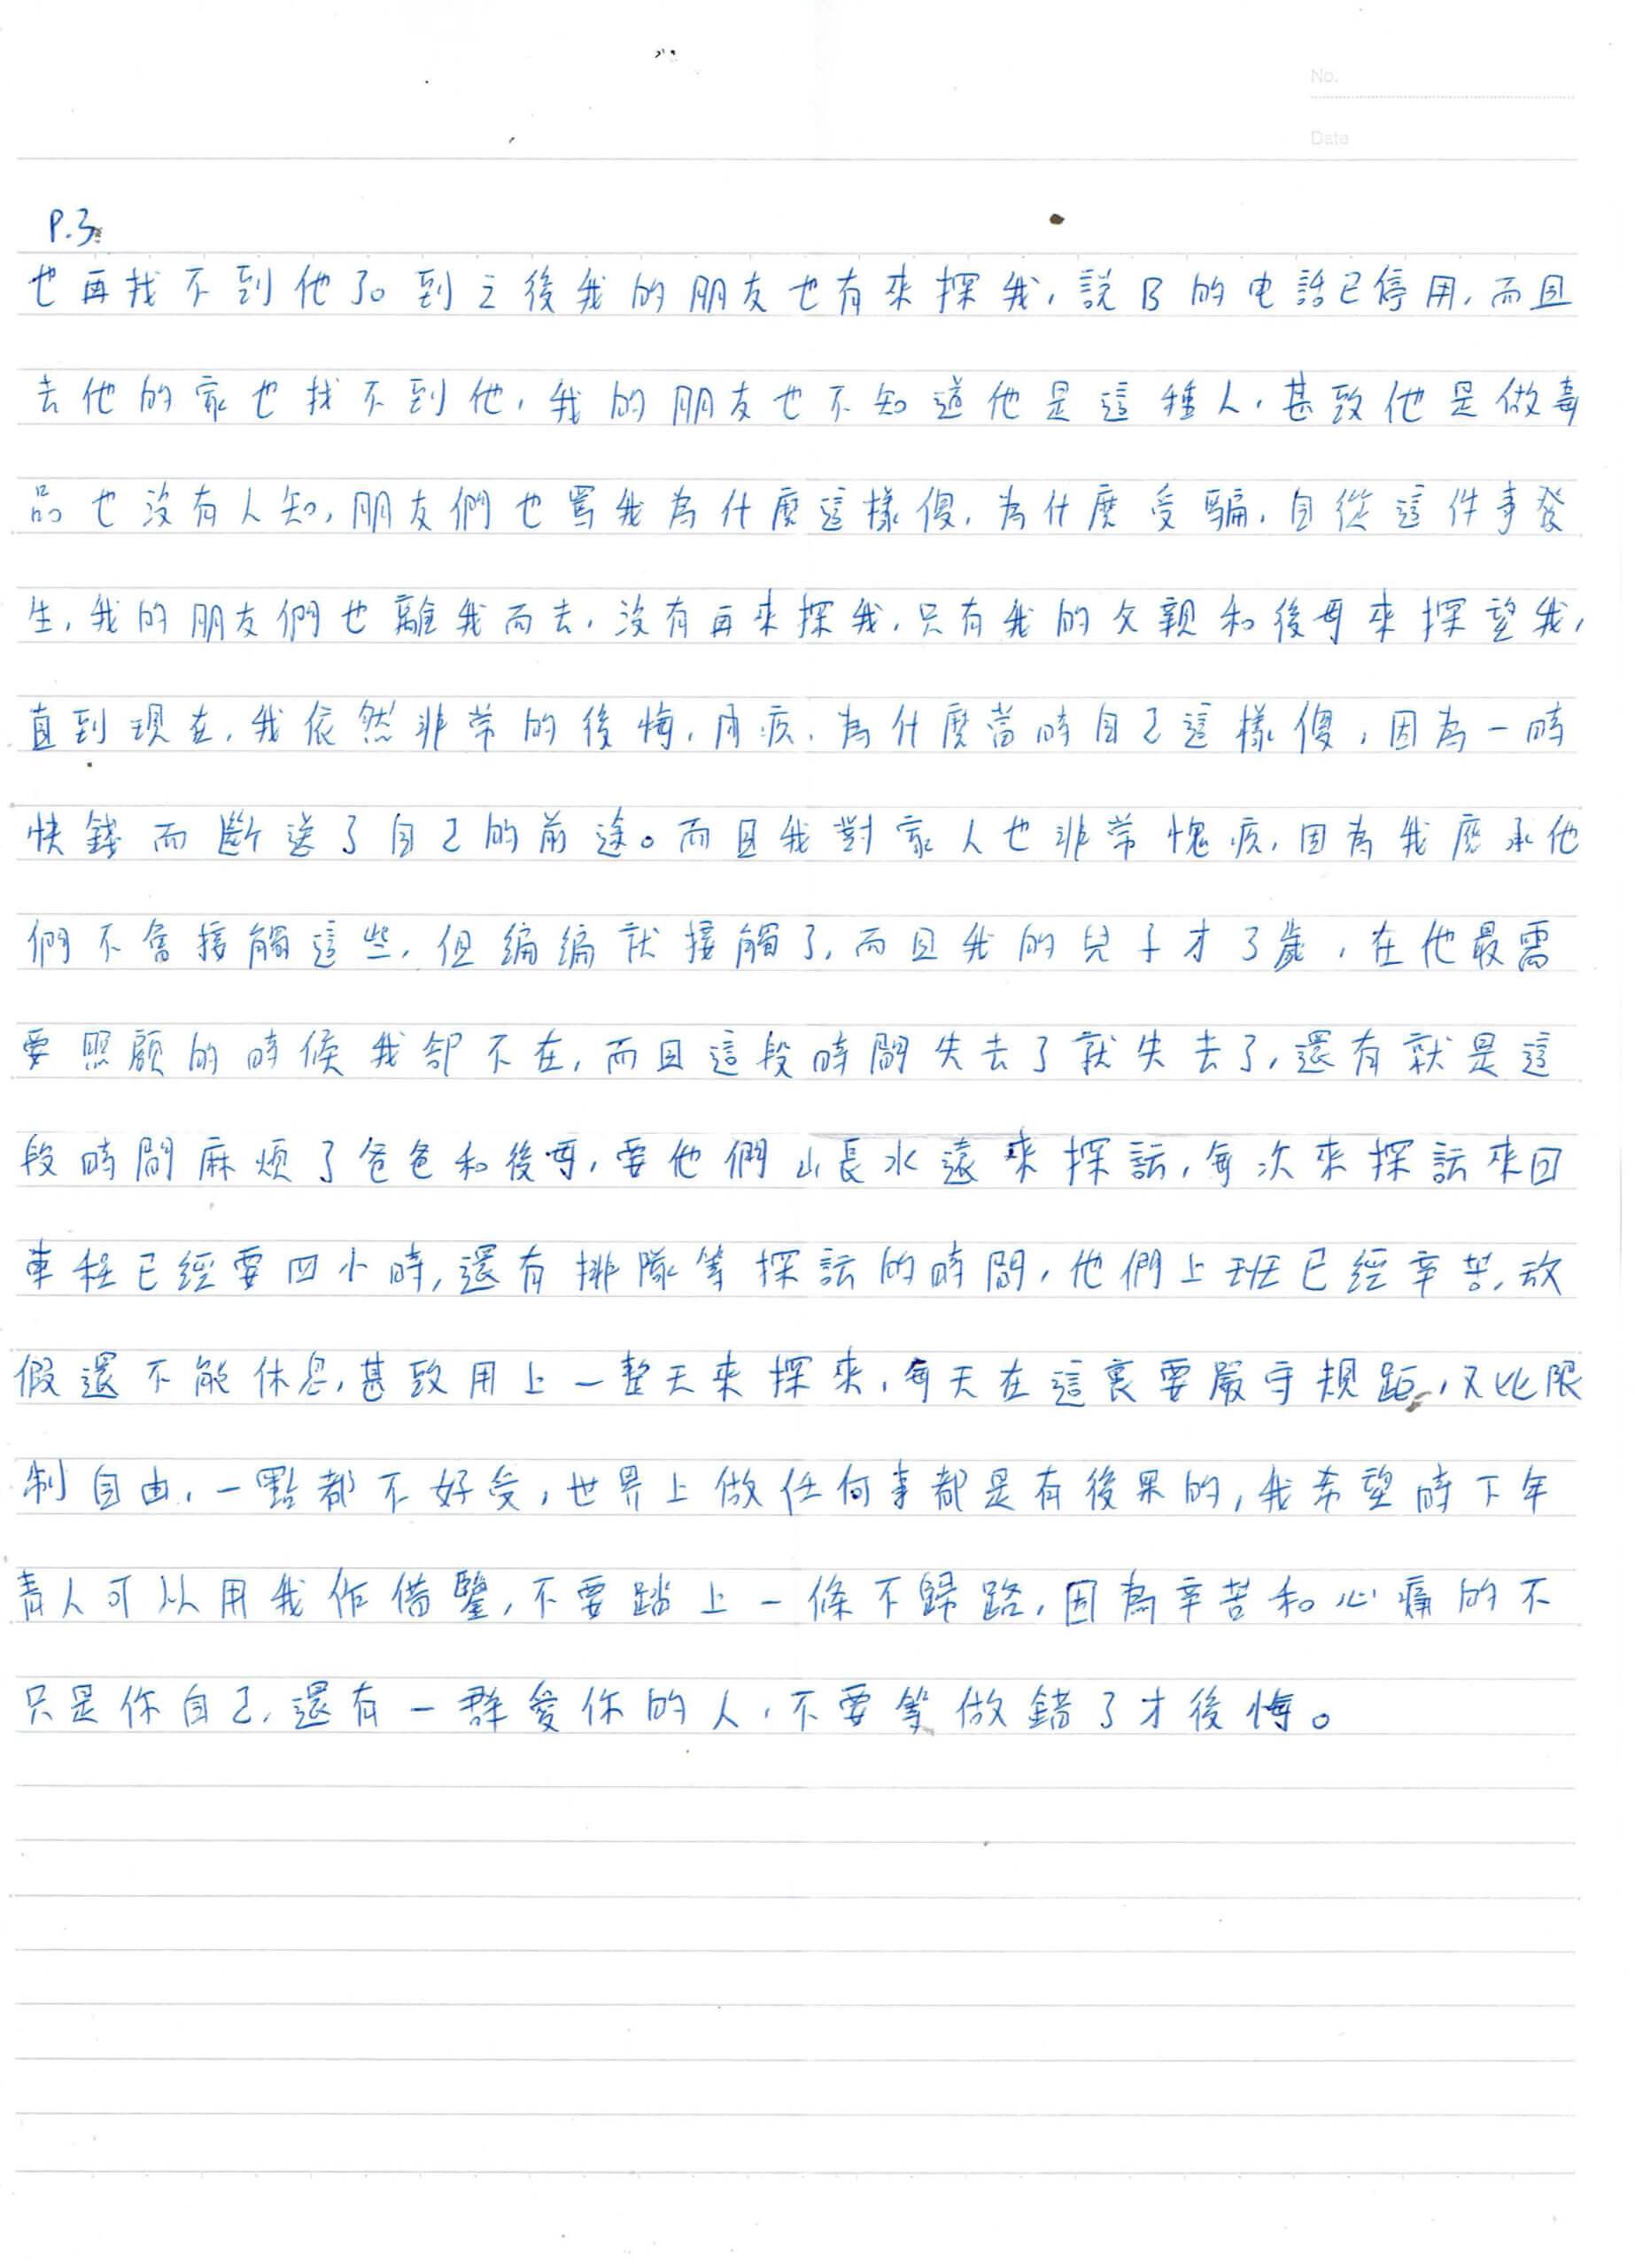 No.
Date
P.3
也再找不到他了。到之後我的朋友也有來探我,說B的电話已停用,而且
去他的家也找不到他,我的朋友也不知道他是這種人,甚致他是做毒
品也沒有人知,朋友們也罵我為什麼這樣傻,為什麼受騙,自從這件事發
生,我的朋友們也離我而去,沒有再來探我,只有我的父親和後母來探望我,
直到現在,我依然非常的後悔,內疚,為什麼當時自己這樣傻,因為一時
快錢而斷送了自己的前途。而且我對家人也非常愧疚,因為我應承他
們不會接觸這些,但編編就接觸了,而且我的兒子才3歲,在他最需
要照顧的時候我卻不在,而且這段時間失去了就失去了,還有就是這
段時間麻煩了爸爸和後母,要他們山長水遠來探訪,每次來探訪來回
車程已經要四小時,還有排隊等探訪的時間,他們上班已經辛苦,放
假還不能休息,甚致用上一整天來探來,每天在這裏要嚴守規距,又比限
制自由,一點都不好受,世界上做任何事都是有後果的,我希望時下年
青人可以用我作借鑒,不要踏上一條不歸路,因為辛苦和心痛的不
只是你自己,還有一群愛你的人,不要等做錯了才後悔。